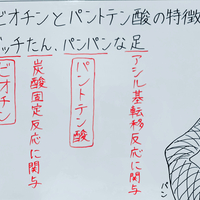 ビオチンとパントテン酸の特徴
ビッチたん、パンパンな足
アシル基転移反応に関与
パントテン酸
炭酸固定反応に関与
ビオチン
パン